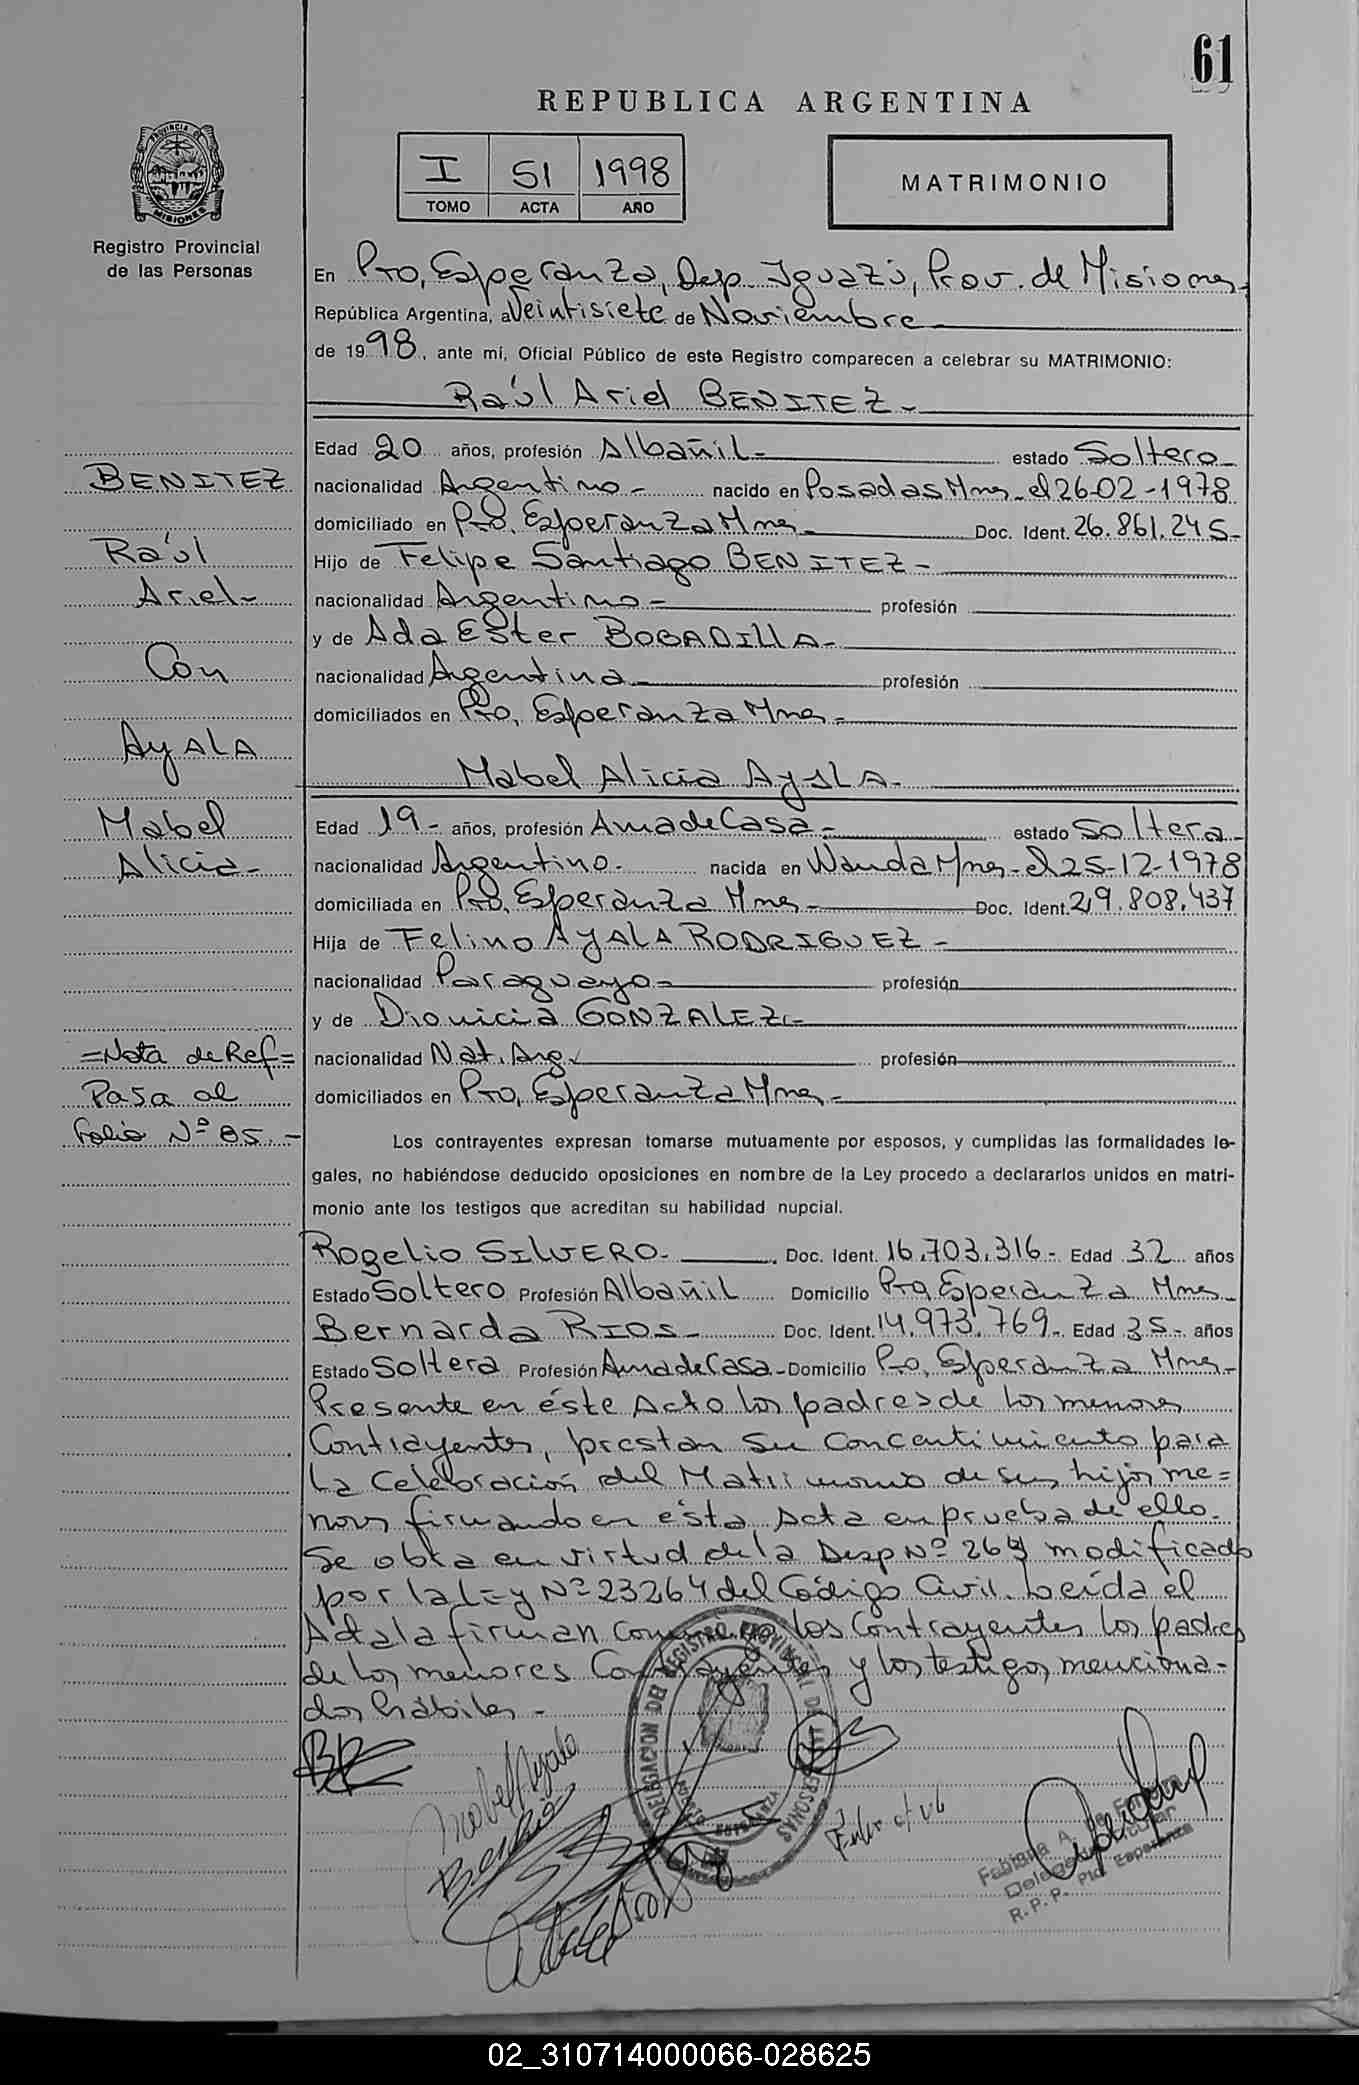 61
REPUBLICA ARGENTINA
I 51 1998
TOMO ACTA AÑO
MATRIMONIO
PROVINCIA DE
MISIONES
Registro Provincial
de las Personas
En Pto, Esperanza, Dep. Iguazú, Prov. de Misiones
República Argentina, a Veintisiete de Noviembre
de 1998, ante mí, Oficial Público de este Registro comparecen a celebrar su MATRIMONIO:
Raúl Ariel BENITEZ-
Edad 20 años, profesión Albañil- estado Soltero-
nacionalidad Argentino- nacido en Posadas Mnes- el 26-02-1978
domiciliado en Pto. Esperanza Mnes- Doc. Ident. 26.861.245-
Hijo de Felipe Santiago BENITEZ-
nacionalidad Argentino- profesión
y de Ada Ester BOBADILLA-
nacionalidad Argentina- profesión
domiciliados en Pto, Esperanza Mnes-
Mabel Alicia AYALA-
Edad 19- años, profesión Ama de Casa- estado Soltera-
nacionalidad Argentino- nacida en Wanda Mnes- el 25-12-1978
domiciliada en Pto, Esperanza Mnes- Doc. Ident. 29.808.437
Hija de Felino AYALA RODRIGUEZ-
nacionalidad Paraguayo- profesión
y de Dionicia GONZALEZ-
nacionalidad Nat. Arg. profesión
domiciliados en Pto, Esperanza Mnes-
BENITEZ
Raúl
Ariel-
Con
AyALA
Mabel
Alicia-
=Nota de Ref=
Pasa al
Folio Nº 85.-
Los contrayentes expresan tomarse mutuamente por esposos, y cumplidas las formalidades le-
gales, no habiéndose deducido oposiciones en nombre de la Ley procedo a declararlos unidos en matri-
monio ante los testigos que acreditan su habilidad nupcial.
Rogelio SILVERO- Doc. Ident. 16.703.316- Edad 32 años
Estado Soltero Profesión Albañil Domicilio Pto, Esperanza Mnes-
Bernarda RIOS- Doc. Ident. 14.973.769- Edad 35- años
Estado Soltera Profesión Ama de Casa- Domicilio Pto, Esperanza Mnes-
Presente en éste Acto los padres de los menores
Contrayentes, prestan su concentimiento para
la Celebración del Matrimonio de sus hijos me=
nores firmando en ésta Acta en prueba de ello.
Se obta en virtud de la Disp Nº modificado
por la Ley Nº 23264 del Código Civil. Leída el
Acta la firman conmigo los Contrayentes los padres
de los menores Contrayentes y los testigos menciona-
dos hábiles-
DELEGACION DEL REGISTRO PROVINCIAL DE LAS PERSONAS
ESPERANZA
Mabel Ayala
Benitez
Fabiana A. de
Delegada Titular
R. P. P. Pto. Esperanza
02_310714000066-028625